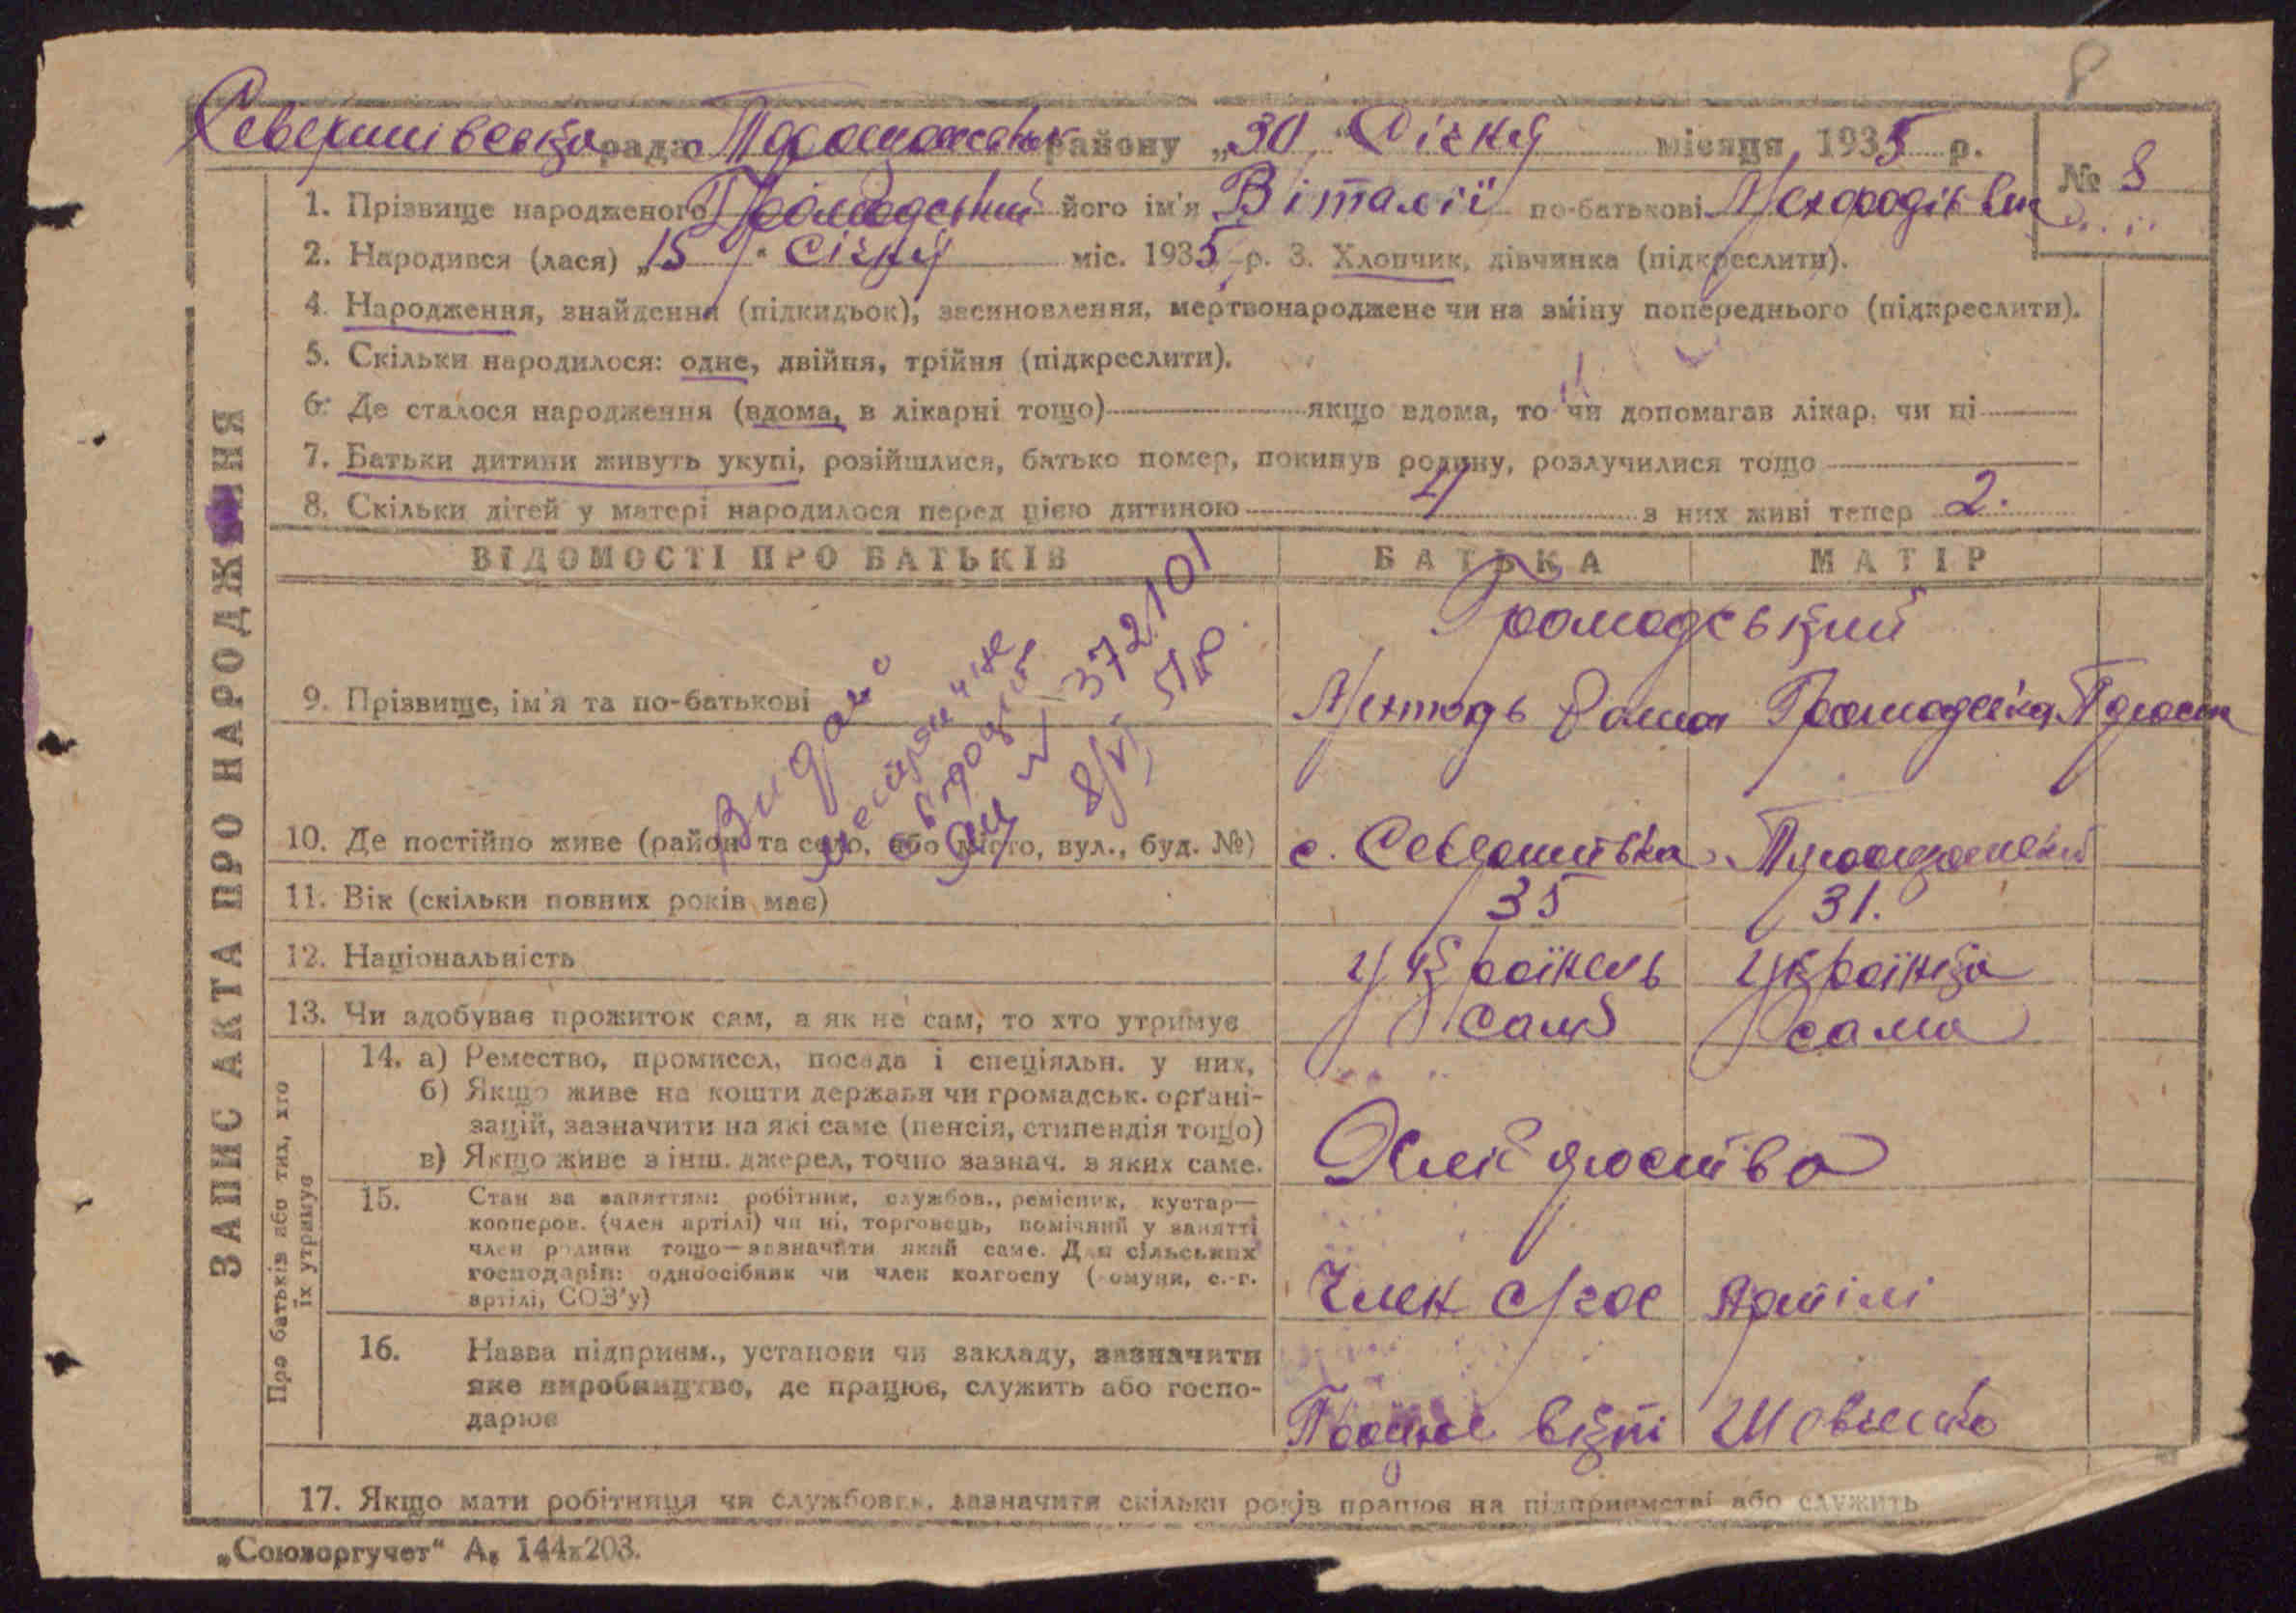 8
рада району „30" Січня місяця 1935 р.
№ 8
1. Прізвище народженого Громадський його ім'я Віталії по-батькові
2. Народився (лася) „15" Січня міс. 1935 р. 3. Хлопчик, дівчинка (підкреслити).
4. Народження, знайдення (підкидьок), засиновлення, мертвонароджене чи на зміну попереднього (підкреслити).
5. Скільки народилося: одне, двійня, трійня (підкреслити).
6. Де сталося народження (вдома, в лікарні тощо) якщо вдома, то чи допомагав лікар, чи ні
7. Батьки дитини живуть укупі, розійшлися, батько помер, покинув родину, розлучилися тощо
8. Скільки дітей у матері народилося перед цією дитиною 4 з них живі тепер 2.
ВІДОМОСТІ ПРО БАТЬКІВ БАТЬКА МАТІР
Громадський
9. Прізвище, ім'я та по-батькові Громадська
Видано
372101
10. Де постійно живе (район та село, або місто, вул., буд. №) с. Севериновка
11. Вік (скільки повних років має) 35 31.
12. Національність Українець Українка
13. Чи здобуває прожиток сам, а як не сам, то хто утримує сам сама
14. а) Ремество, промисел, посада і спеціяльн. у них,
б) Якщо живе на кошти держави чи громадськ. орґані-
зацій, зазначити на які саме (пенсія, стипендія тощо)
в) Якщо живе з інш. джерел, точно зазнач. з яких саме.
Хліборобство
15. Стан за заняттям: робітник, службов., ремісник, кустар—
кооперов. (член артілі) чи ні, торговець, помічний у занятті
член родини тощо—зазначити який саме. Для сільських
господарів: одноосібник чи член колгоспу (комуни, с.-г.
артілі, СОЗ'у)
Член Артілі
16. Назва підприєм., установи чи закладу, зазначити
яке виробництво, де працює, служить або госпо-
дарює
Працює Шевченко
17. Якщо мати робітниця чи службовка, зазначити скільки років працює на підприємстві або служить
ЗАПИС АКТА ПРО НАРОДЖЕННЯ
Про батьків або тих, хто
їх утримує
„Союзоргучет" А₅ 144х203.